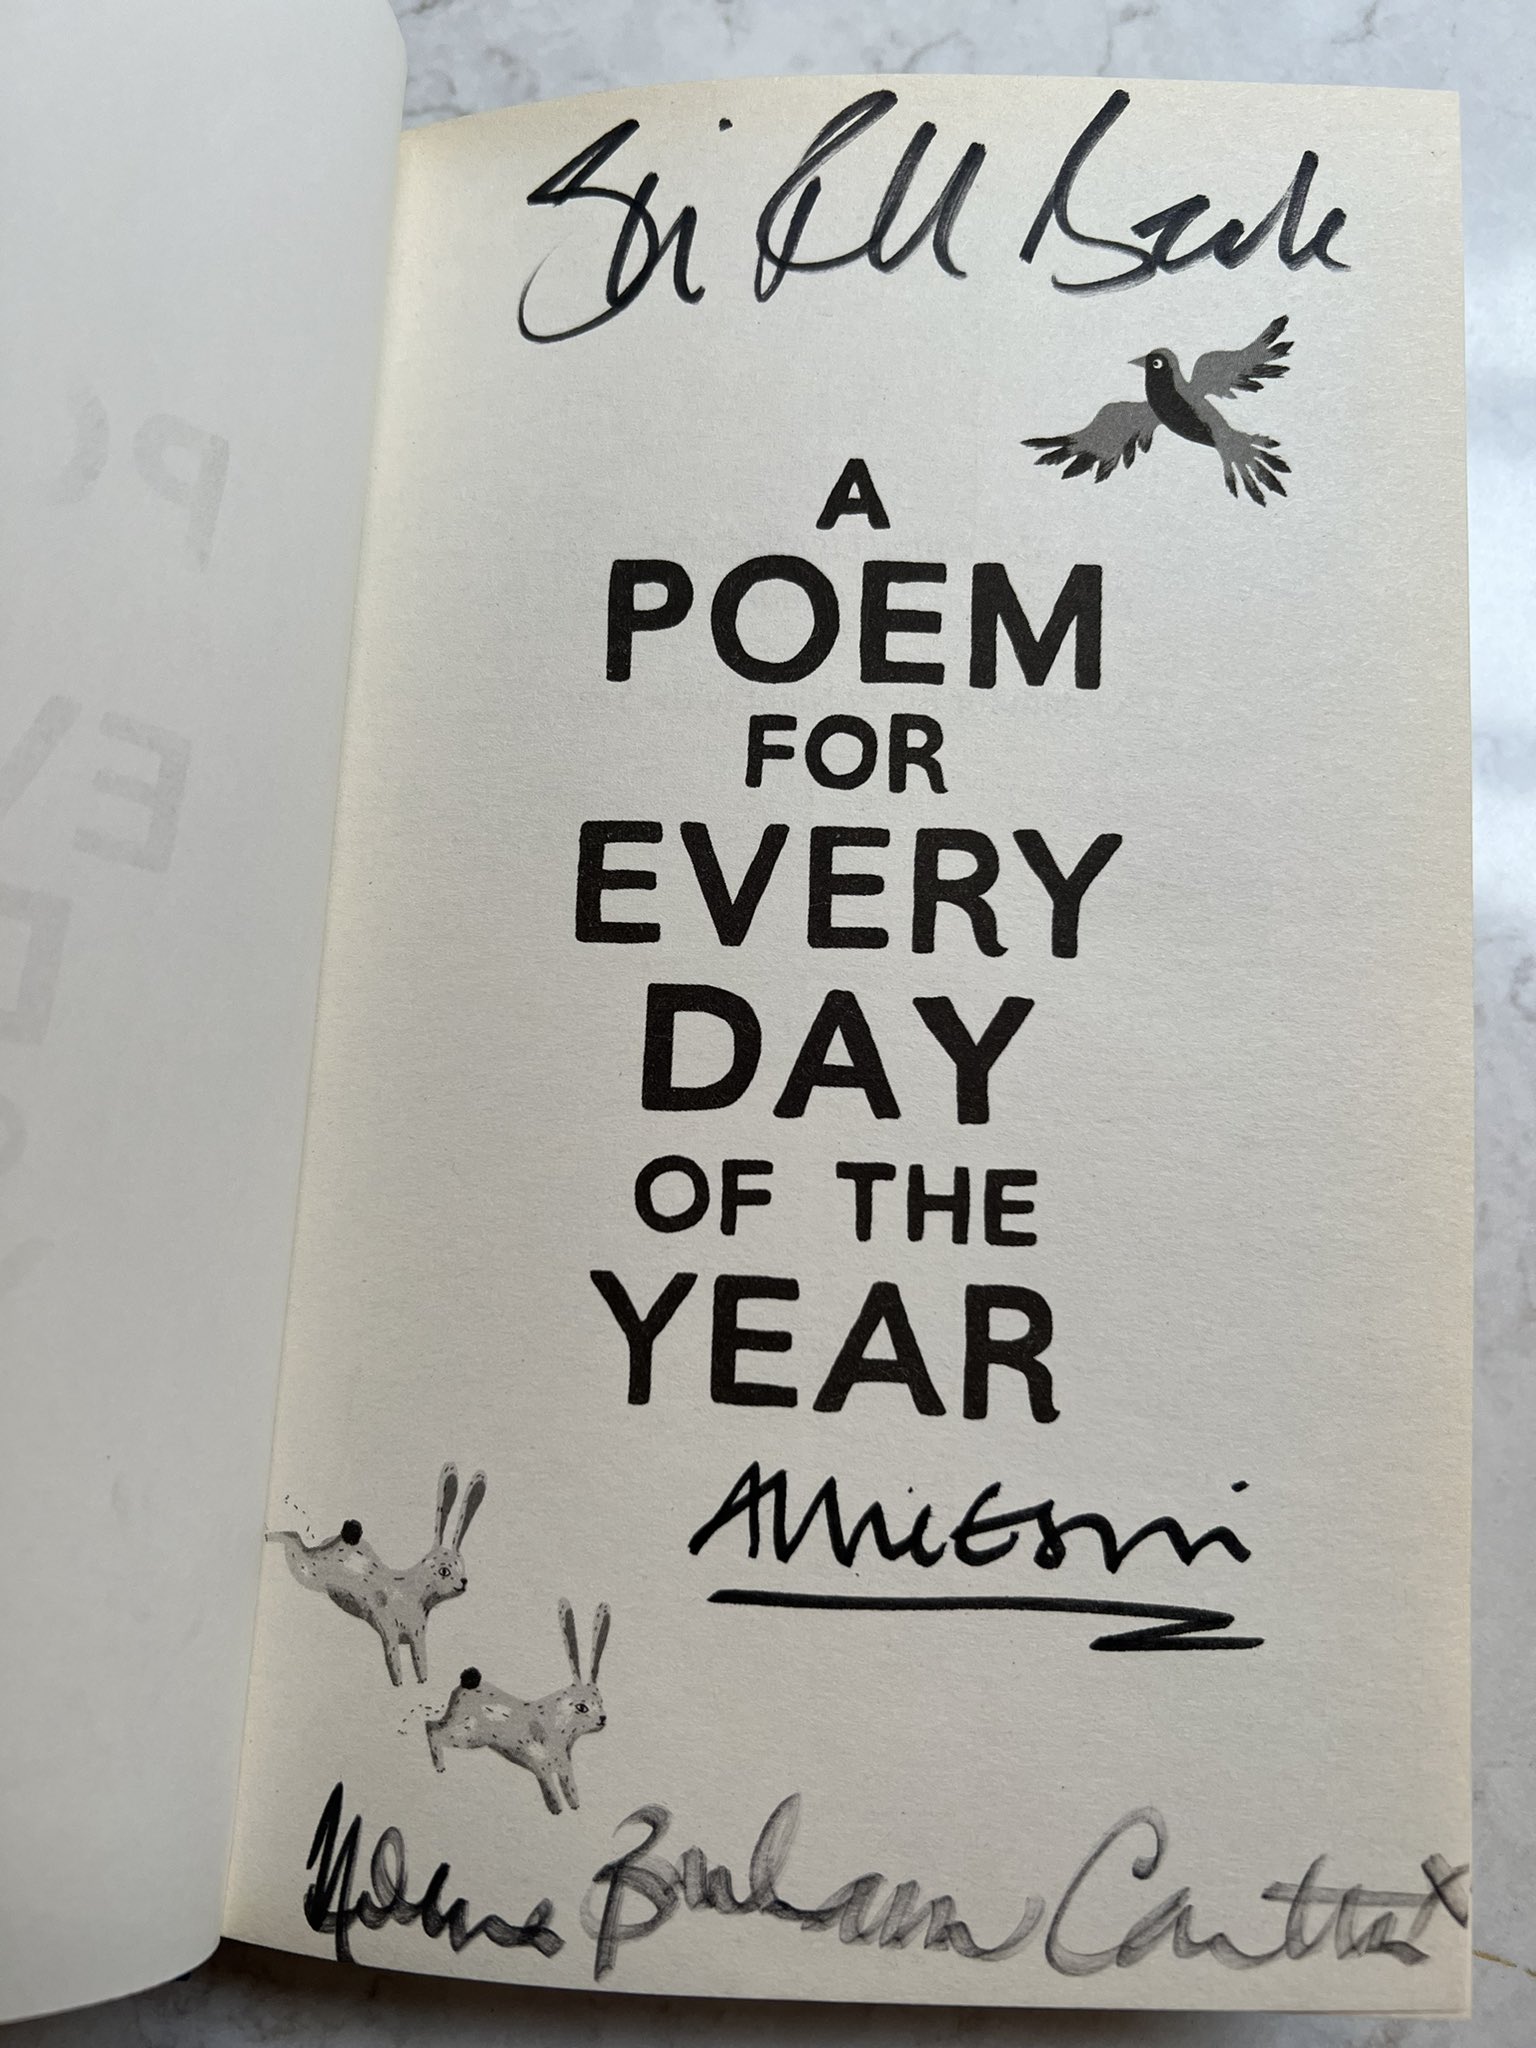 Simon Russell Beale
A
POEM
FOR
EVERY
DAY
OF THE
YEAR
Allie Esiri
Helena Bonham Carter x